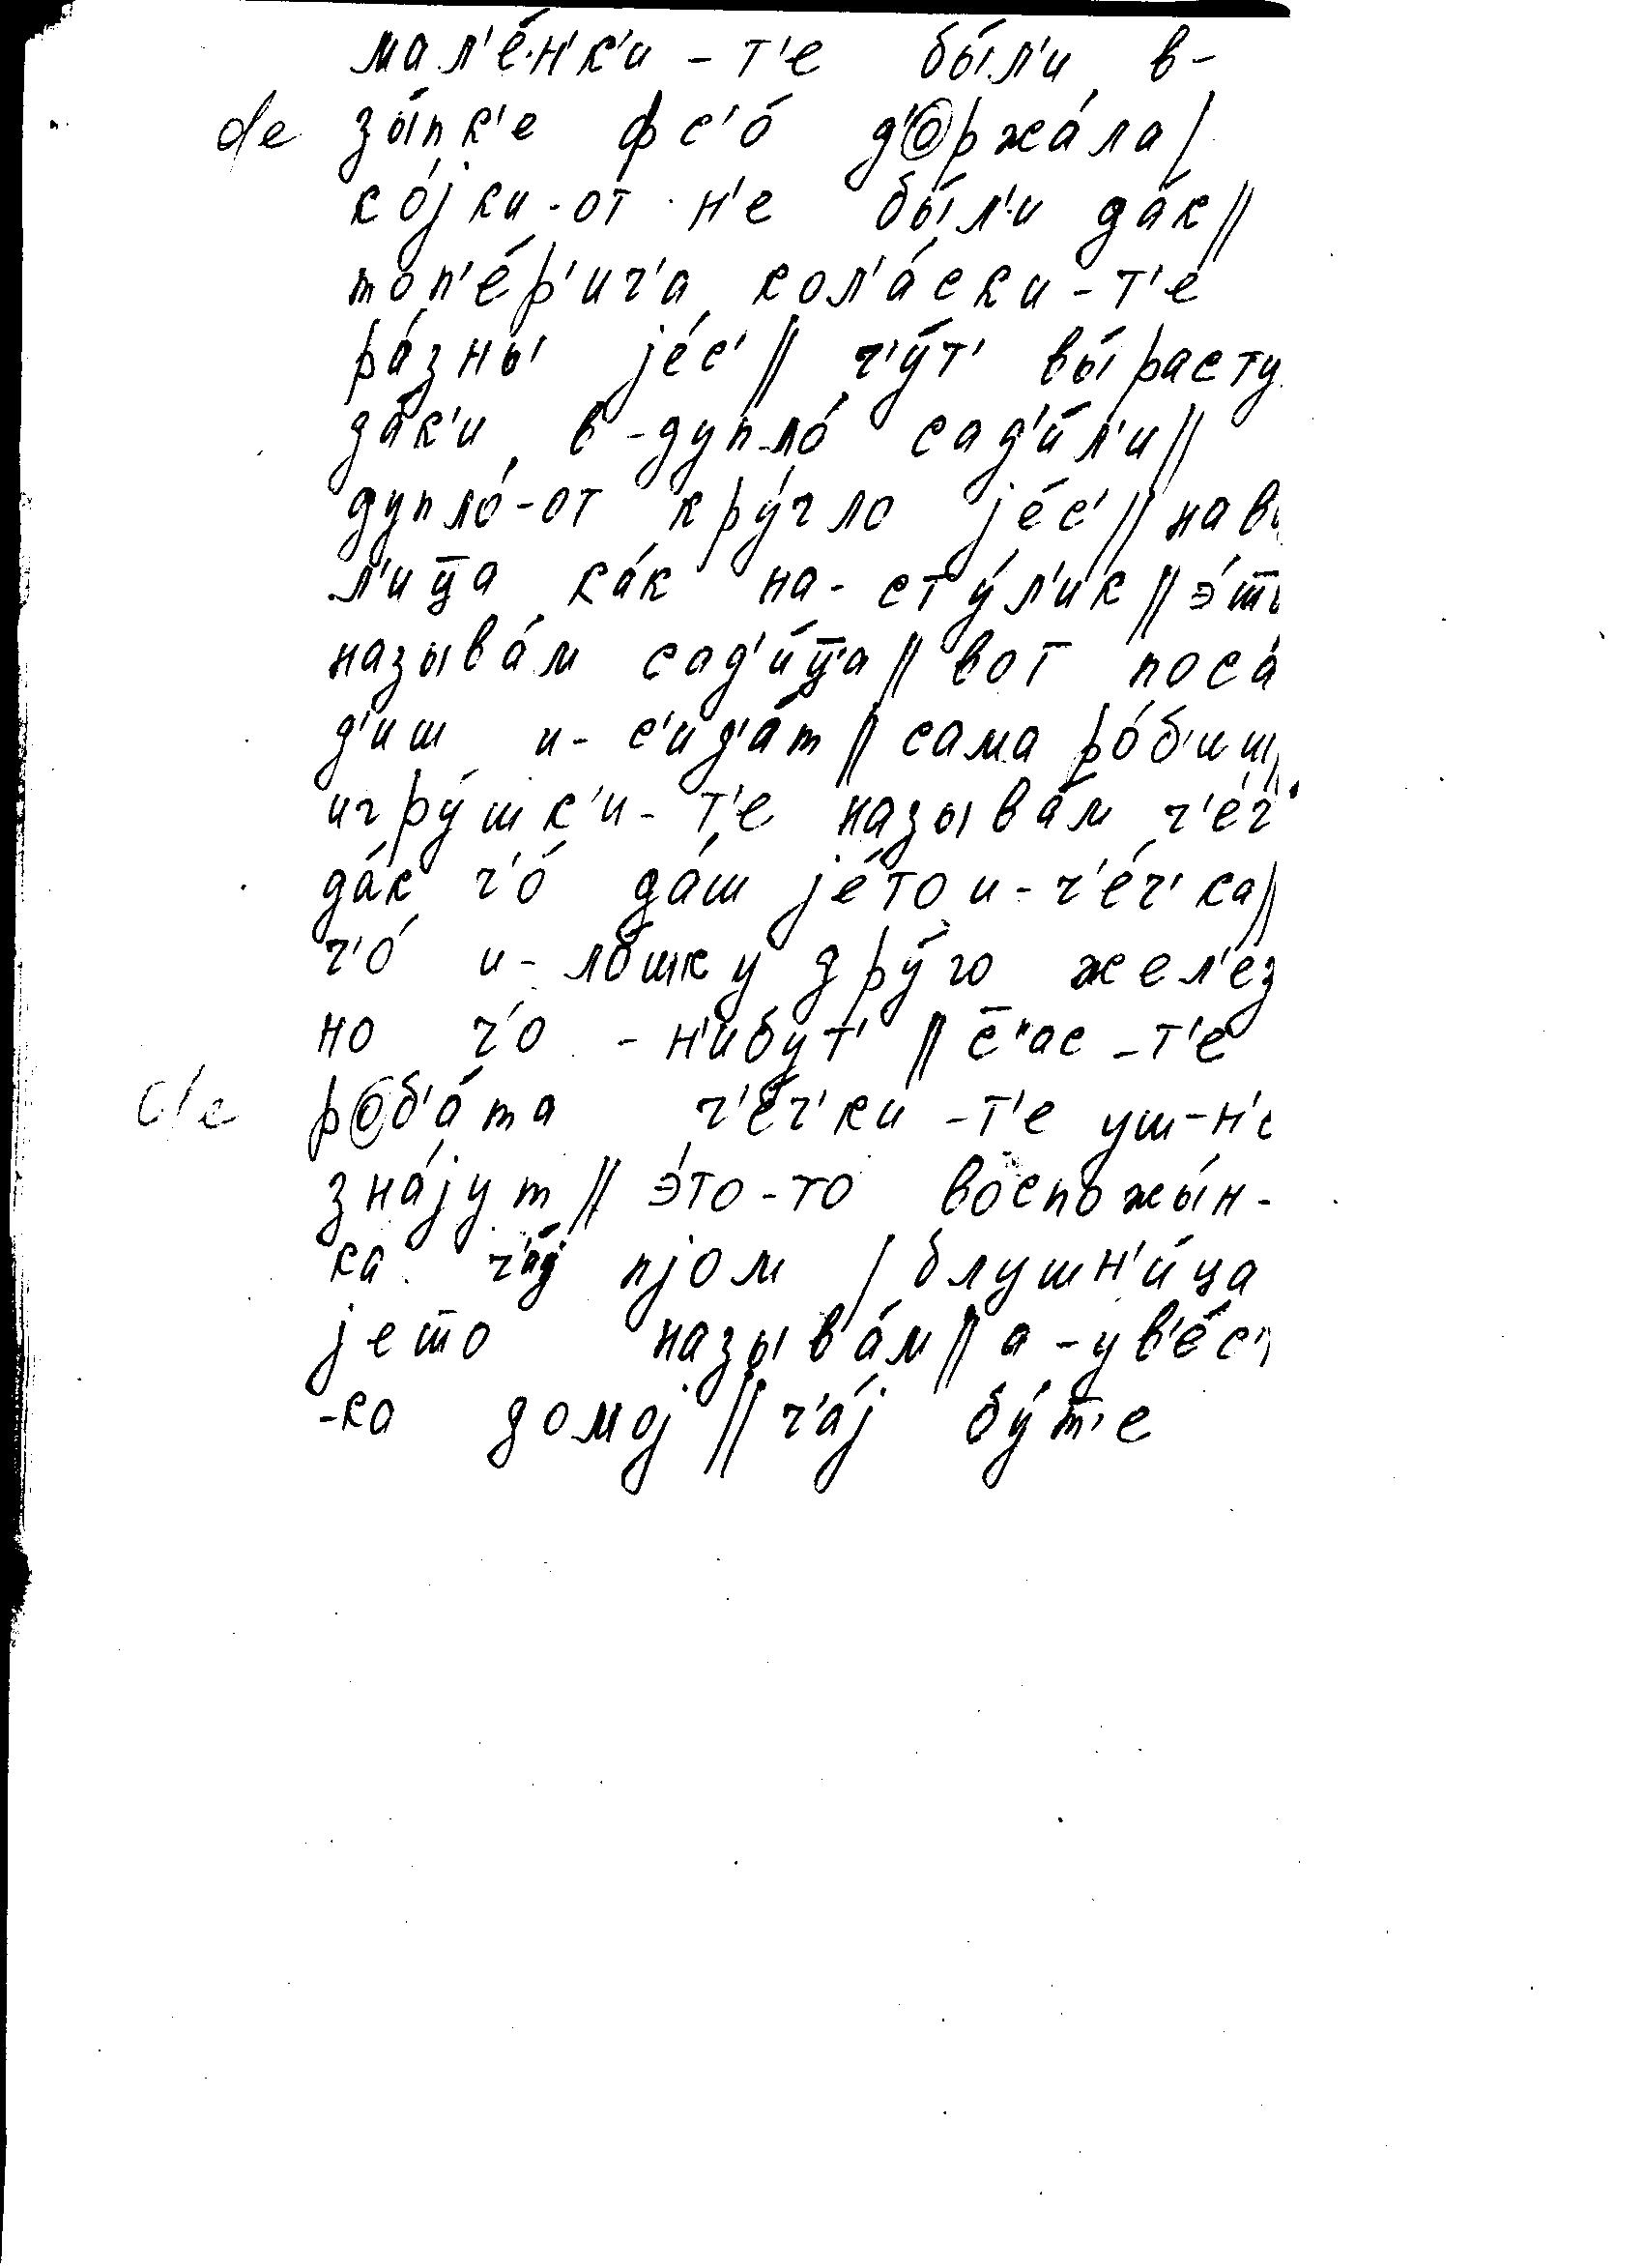 мал'е́н'к'и - т'е бы́л'и в-
de зы́пк'е фс'о́ д'оржа́ла/
ко́јки-от н'е бы́л'и да́к//
топ'е́р'ич'а кол'а́ски-т'е
ра́зны је́с'// ч'у́т' вы́расту
да́к'и в-дупло́ сад'и́л'и//
дупло́-от кру́гло је́с'// нав
л'иц̄а ка́к на-сту́л'ик// э́т
называ́м сад'и́ц̄а// вот поса́
д'иш и-с'ид'а́т// сама ро́б'иш
игру́шк'и-т'е называ́м ч'е́ч'
да́к ч'о́ да́ш је́то и-ч'е́ч'ка//
ч'о́ и-ло́шку дру́го жел'е́з
но ч'о-н'ибут'// с̄'ас-т'е
de роб'а́та ч'е́ч'ки-т'е уш-н'е
зна́јут// э́то-то воспожы́н-
ка ч'а́ј пјом / блушн'и́ца
јето называ́м// а-ув'е́с'
-ка домој// ч'а́ј бу́т'е